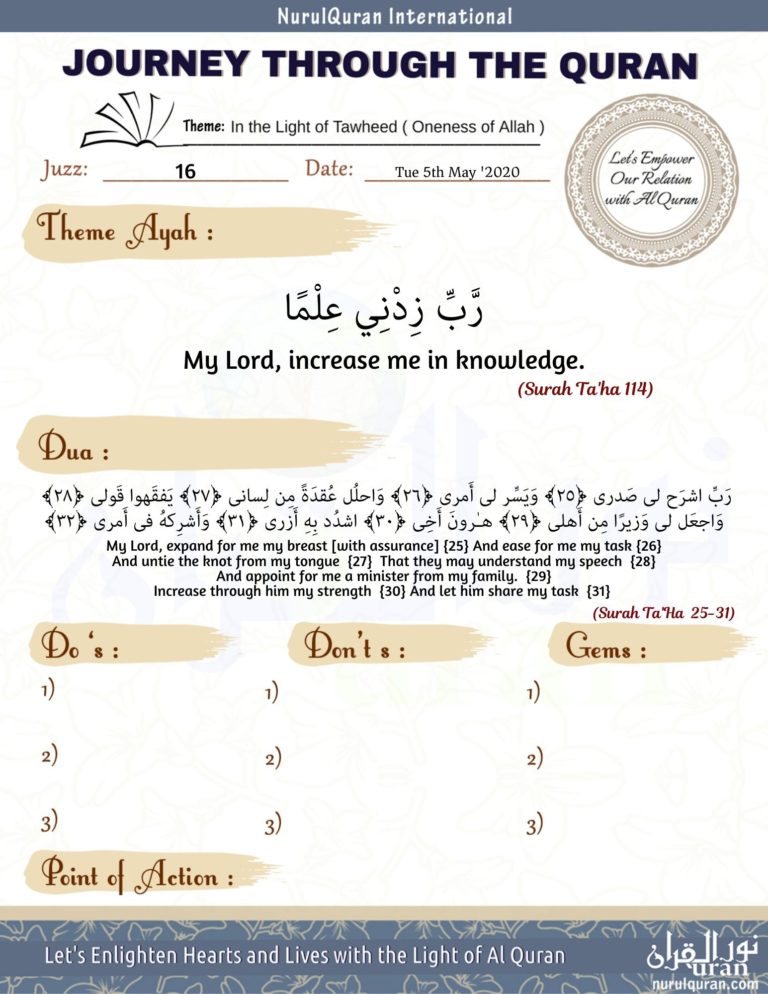 NurulQuran International
JOURNEY THROUGH THE QURAN
Theme: In the Light of Tawheed ( Oneness of Allah )
Juzz: 16 Date: Tue 5th May '2020
Let's Empower
Our Relation
with Al Quran
Theme Ayah :
رَّبِّ زِدْنِي عِلْمًا
My Lord, increase me in knowledge.
(Surah Ta'ha 114)
Dua :
رَبِّ اشرَح لى صَدرى ﴿٢٥﴾ وَيَسِّر لى أَمرى ﴿٢٦﴾ وَاحلُل عُقدَةً مِن لِسانى ﴿٢٧﴾ يَفقَهوا قَولى ﴿٢٨﴾
وَاجعَل لى وَزيرًا مِن أَهلى ﴿٢٩﴾ هـٰرونَ أَخِى ﴿٣٠﴾ اشدُد بِهِ أَزرى ﴿٣١﴾ وَأَشرِكهُ فى أَمرى ﴿٣٢﴾
My Lord, expand for me my breast [with assurance] {25} And ease for me my task {26}
And untie the knot from my tongue {27} That they may understand my speech {28}
And appoint for me a minister from my family. {29}
Increase through him my strength {30} And let him share my task {31}
(Surah Ta'Ha 25-31)
Do 's : Don't s : Gems :
1) 1) 1)
2) 2) 2)
3) 3) 3)
Point of Action :
Let's Enlighten Hearts and Lives with the Light of Al Quran
نور القرآن
uran
nurulquran.com